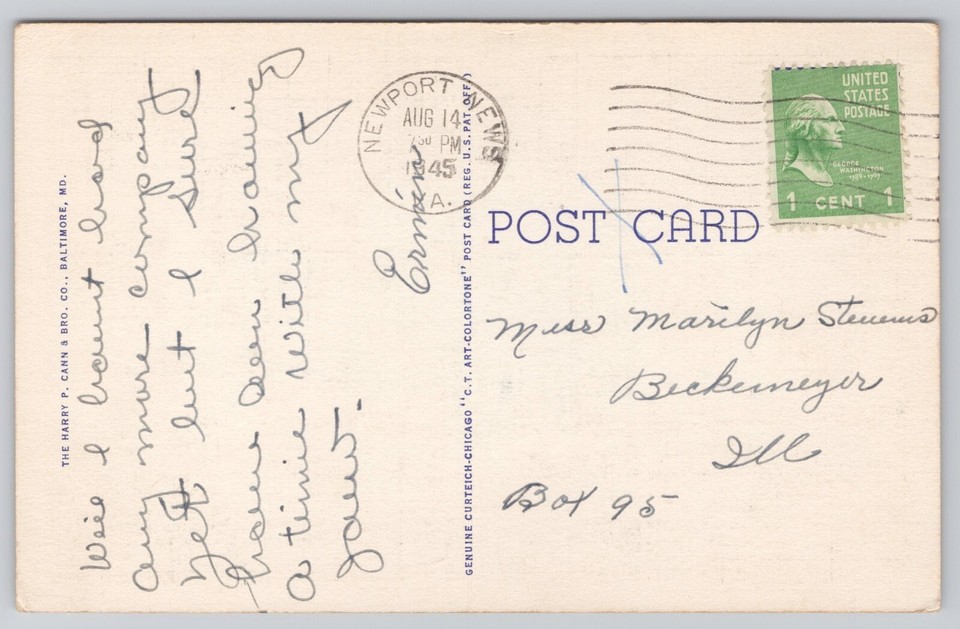 THE HARRY P. CANN & BRO. CO., BALTIMORE, MD.
Well I havent had
any more company
yet but I sure
have been having
a time with my
jaw.
GENUINE CURTEICH-CHICAGO "C.T. ART-COLORTONE" POST CARD (REG. U.S. PAT. OFF.)
NEWPORT NEWS
AUG 14
30 PM
1945
VA.
UNITED
STATES
POSTAGE
GEORGE
WASHINGTON
1789-1797
1 CENT 1
POST CARD
Miss Marilyn Stevens
Beckemeyer
Ill
Box 95